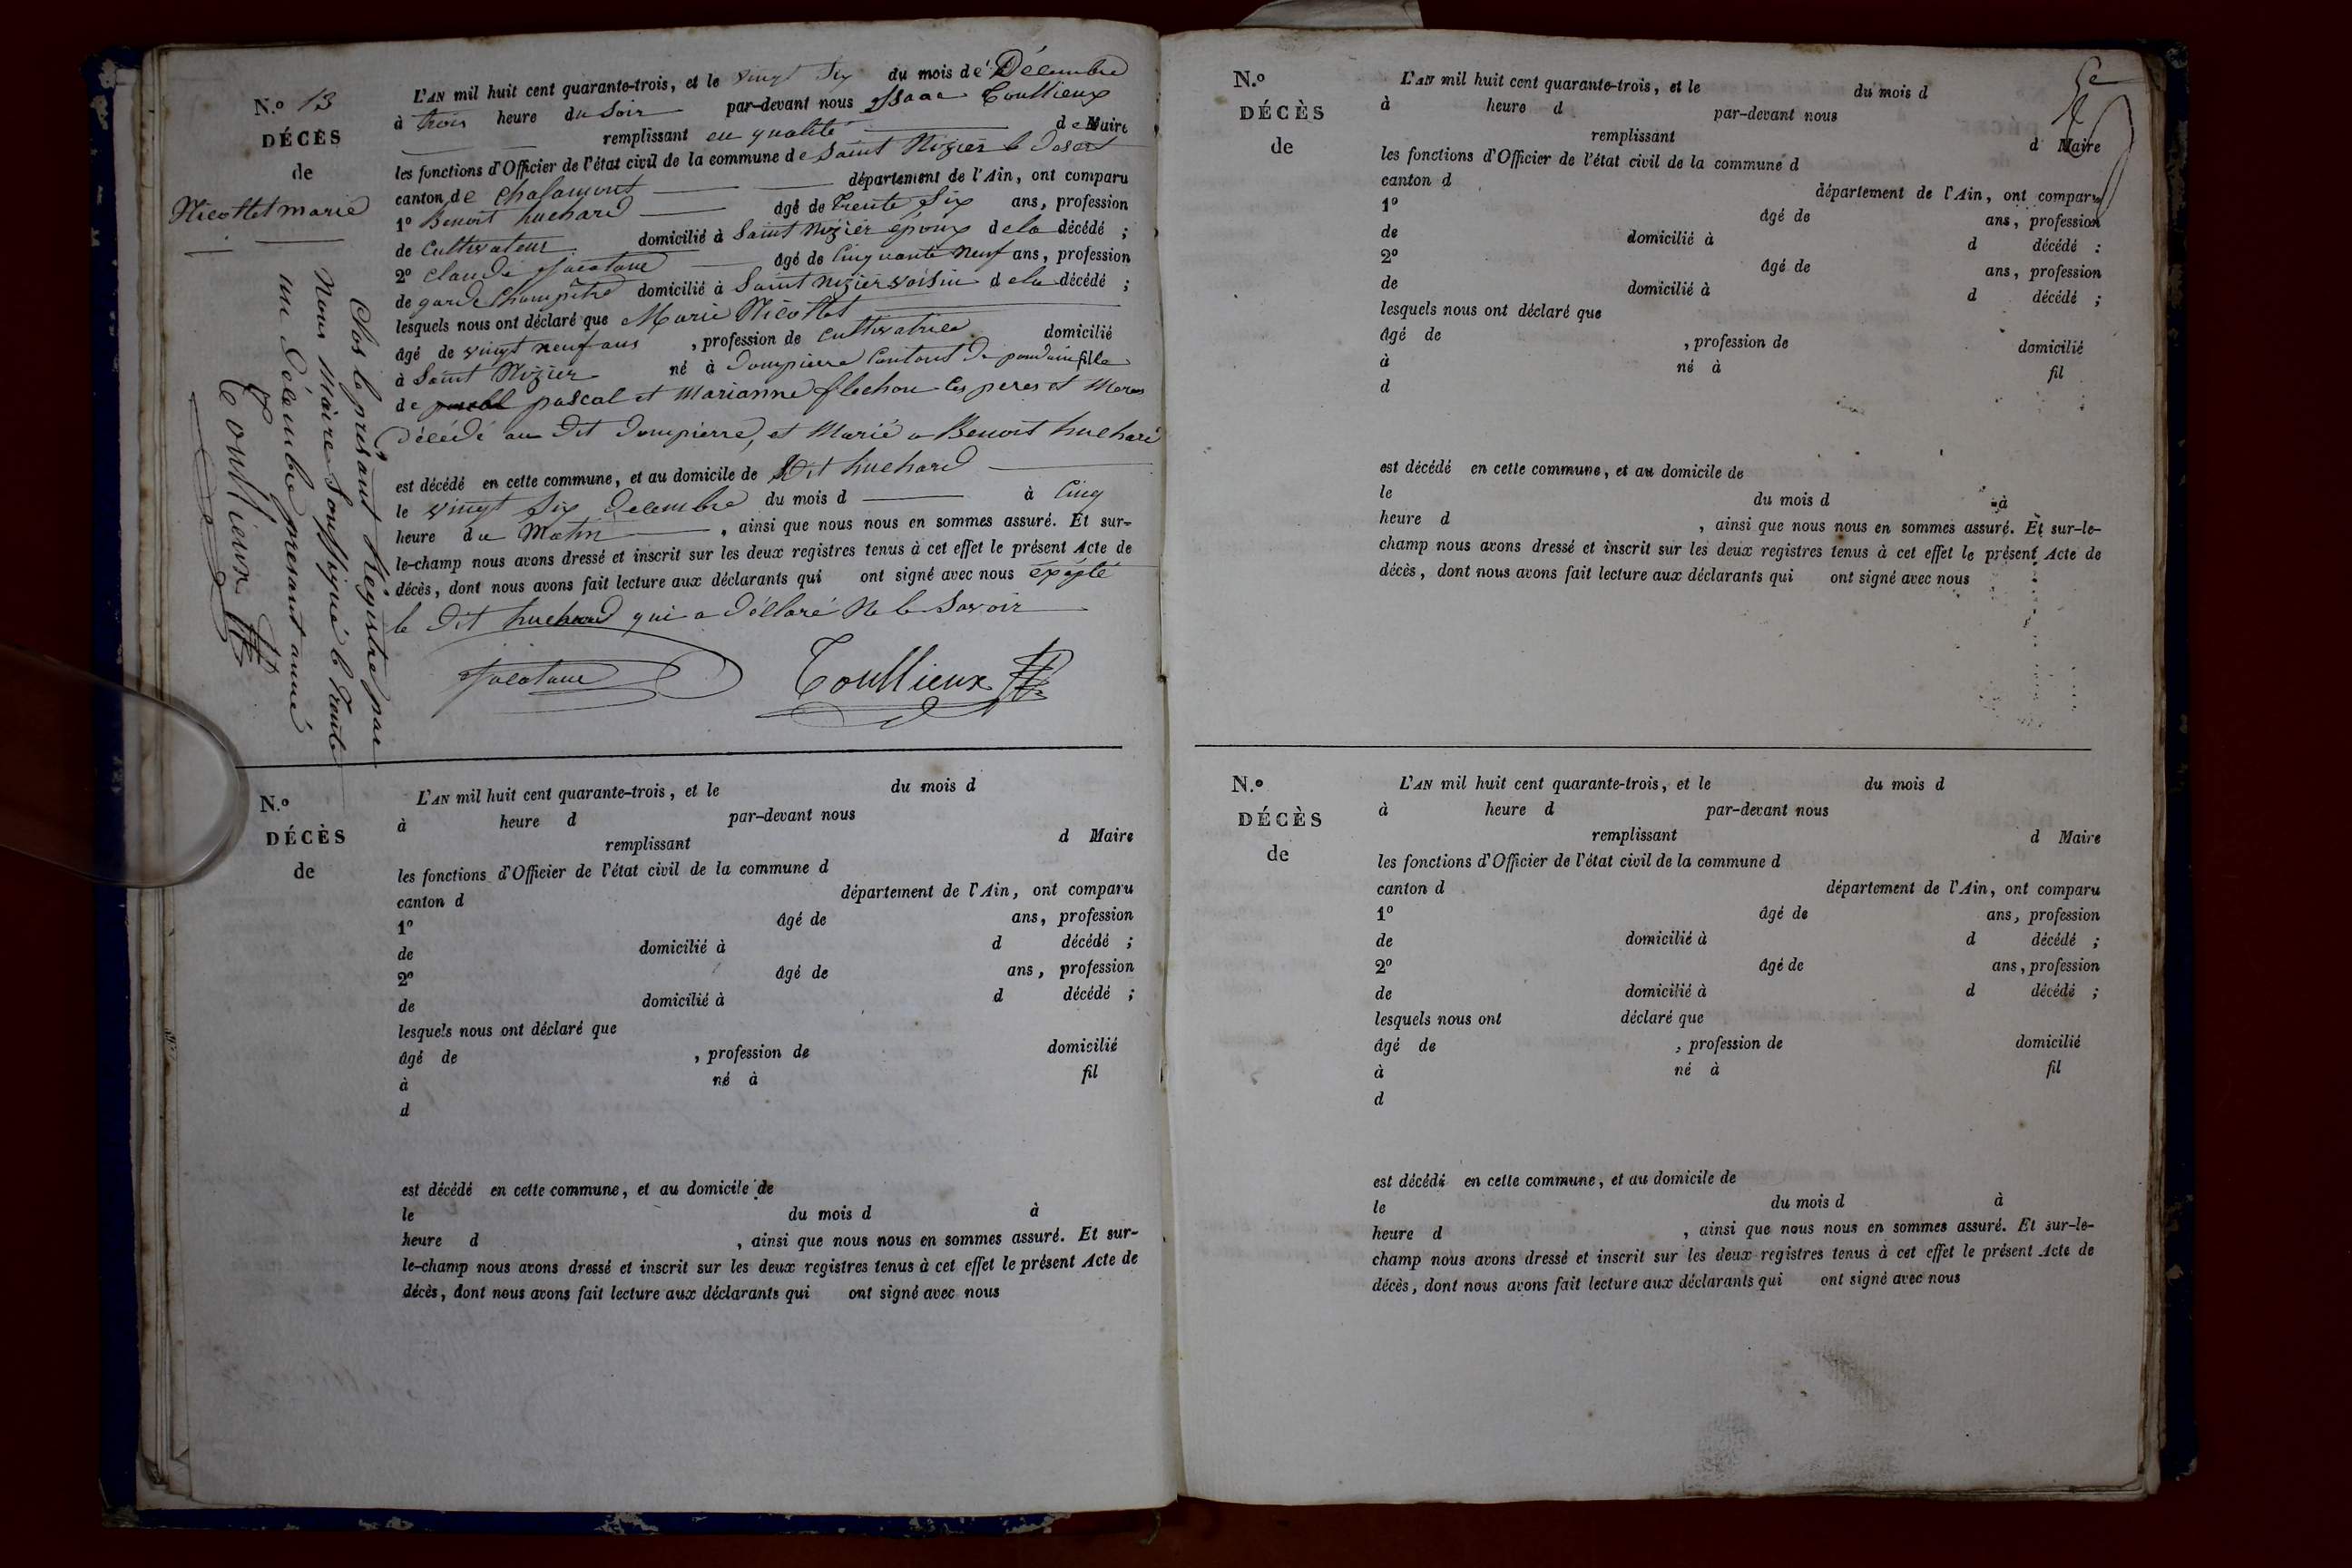 N.º 13
DÉCÈS
de
Nicollet marie
L'AN mil huit cent quarante-trois, et le vingt Six du mois de Décembre
à trois heure du Soir par-devant nous Isaac Coullieux
remplissant en qualité de Maire
les fonctions d'Officier de l'état civil de la commune de Saint Nizier le Désert
canton de Chalamont département de l'Ain, ont comparu
1º Benoit huchard âgé de trente Six ans, profession
de Cultivateur domicilié à Saint Nizier époux de la décédé ;
2º Claude âgé de Cinquante Neuf ans, profession
de garde Champêtre domicilié à Saint Nizier voisin de la décédé ;
lesquels nous ont déclaré que Marie Nicollet
âgé de vingt neuf ans , profession de Cultivatrice domicilié
à Saint Nizier né à Dompierre Canton De pondain fille
de pascal et Marianne flechon les peres et Meres
Décédé au dit Dompierre, et Marié a Benoit huchard
est décédé en cette commune, et au domicile de Dit huchard
le vingt Six Decembre du mois d à Cinq
heure du Matin , ainsi que nous nous en sommes assuré. Et sur-
le-champ nous avons dressé et inscrit sur les deux registres tenus à cet effet le présent Acte de
décès, dont nous avons fait lecture aux déclarants qui ont signé avec nous éxépté
le dit huchard qui a Déllaré Ne le Savoir
Coullieux
Clos le présant Régistre par
Nous Maire Soussigné le trente
un Décembre present année
Coullieux
N.º
DÉCÈS
de
L'AN mil huit cent quarante-trois, et le du mois d
à heure d par-devant nous
remplissant d Maire
les fonctions d'Officier de l'état civil de la commune d
canton d département de l'Ain, ont comparu
1º âgé de ans, profession
de domicilié à d décédé ;
2º âgé de ans, profession
de domicilié à d décédé ;
lesquels nous ont déclaré que
âgé de , profession de domicilié
à né à fil
d
est décédé en cette commune, et au domicile de
le du mois d à
heure d , ainsi que nous nous en sommes assuré. Et sur-
le-champ nous avons dressé et inscrit sur les deux registres tenus à cet effet le présent Acte de
décès, dont nous avons fait lecture aux déclarants qui ont signé avec nous
N.º
DÉCÈS
de
L'AN mil huit cent quarante-trois, et le du mois d
à heure d par-devant nous
remplissant d Maire
les fonctions d'Officier de l'état civil de la commune d
canton d département de l'Ain, ont comparu
1º âgé de ans, profession
de domicilié à d décédé :
2º âgé de ans, profession
de domicilié à d décédé ;
lesquels nous ont déclaré que
âgé de , profession de domicilié
à né à fil
d
est décédé en cette commune, et au domicile de
le du mois d à
heure d , ainsi que nous nous en sommes assuré. Et sur-le-
champ nous avons dressé et inscrit sur les deux registres tenus à cet effet le présent Acte de
décès, dont nous avons fait lecture aux déclarants qui ont signé avec nous
N.º
DÉCÈS
de
L'AN mil huit cent quarante-trois, et le du mois d
à heure d par-devant nous
remplissant d Maire
les fonctions d'Officier de l'état civil de la commune d
canton d département de l'Ain, ont comparu
1º âgé de ans, profession
de domicilié à d décédé ;
2º âgé de ans, profession
de domicilié à d décédé ;
lesquels nous ont déclaré que
âgé de , profession de domicilié
à né à fil
d
est décédé en cette commune, et au domicile de
le du mois d à
heure d , ainsi que nous nous en sommes assuré. Et sur-le-
champ nous avons dressé et inscrit sur les deux registres tenus à cet effet le présent Acte de
décès, dont nous avons fait lecture aux déclarants qui ont signé avec nous